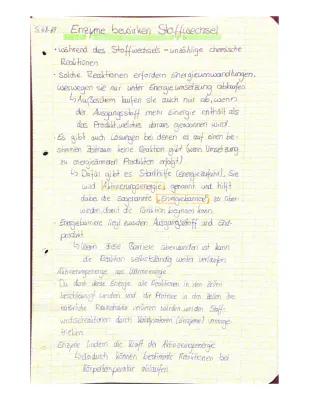 S. 68-69 Enzyme bewirken Stoffwechsel
• während des Stoffwechsels - unzählige chemische
Reaktionen
• Solche Reaktionen erfordern Energieumwandlungen,
weswegen sie nur unter Energieumsetzung ablaufen
↳ Außerdem laufen sie auch nur ab, wenn
der Ausgangsstoff mehr Energie enthält als
das Produkt, welches daraus gewonnen wird.
• Es gibt auch Lösungen bei denen es auf einen be-
stimmten Zeitraum keine Reaktion gibt (wenn Umsetzung
zu energieärmeren Produkten erfolgt)
↳ Dafür gibt es Starthilfe (Energiezufuhr). Sie
wird Aktivierungsenergie genannt und hilft
dabei die sogenannte Energiebarriere zu über-
winden, damit die Reaktion beginnen kann
• Energiebarriere liegt zwischen Ausgangsstoff und End-
produkt
↳ Wenn diese Barriere überwunden ist kann
die Reaktion selbstständig weiter verlaufen
Aktivierungsenergie aus Wärmeenergie
Da durch diese Energie alle Reaktionen in den Zellen
beschleunigt werden und die Proteine in den Zellen ihre
natürliche Raumstruktur verlieren würden werden Stoff-
wechselreaktionen durch Katalysatoren (Enzyme) vorange-
trieben
Enzyme der Aktivierungsenergie
↳ dadurch können bestimmte Reaktionen bei
Körpertemperatur ablaufen